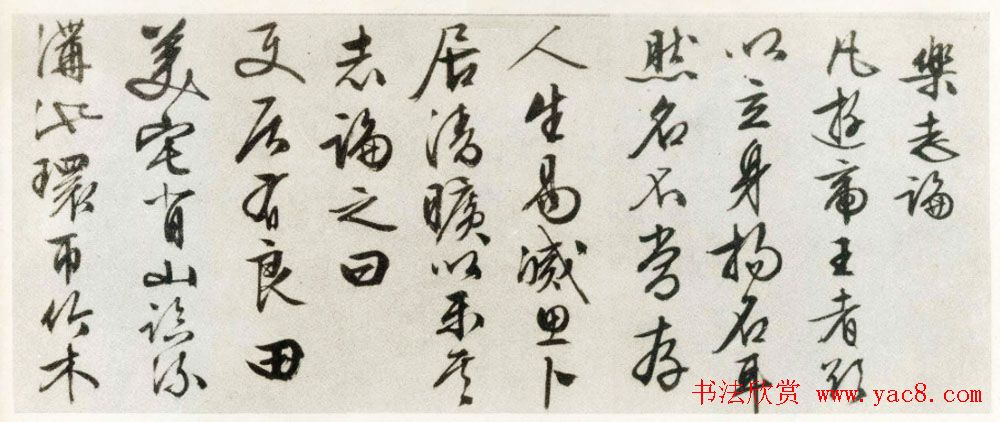 樂志論
凡遊帝王者欲
以立身揚名耳
然名不常存
人生易滅思卜
居清曠以樂其
志論之曰
使居有良田
美宅背山臨流
溝池環帀竹木
书法欣赏 www.yac8.com